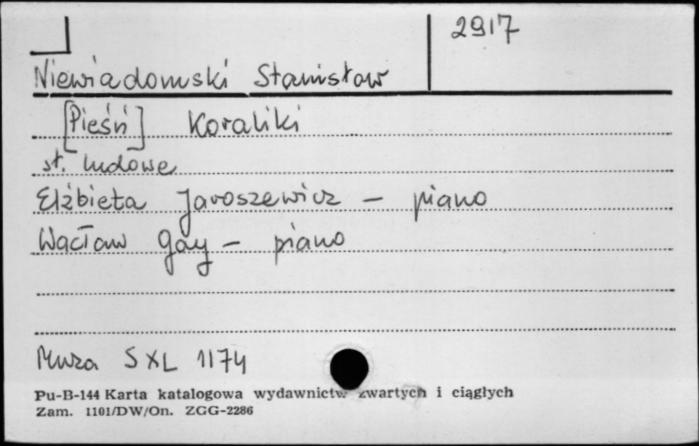 2917
Niewiadomski Stanisław
[Pieśń] Koraliki
sł. ludowe
Elżbieta Jaroszewicz — piano
Wacław Gay — piano
Muza SXL 1174
Pu-B-144 Karta katalogowa wydawnictw zwartych i ciągłych
Zam. 1101/DW/On. ZGG-2286